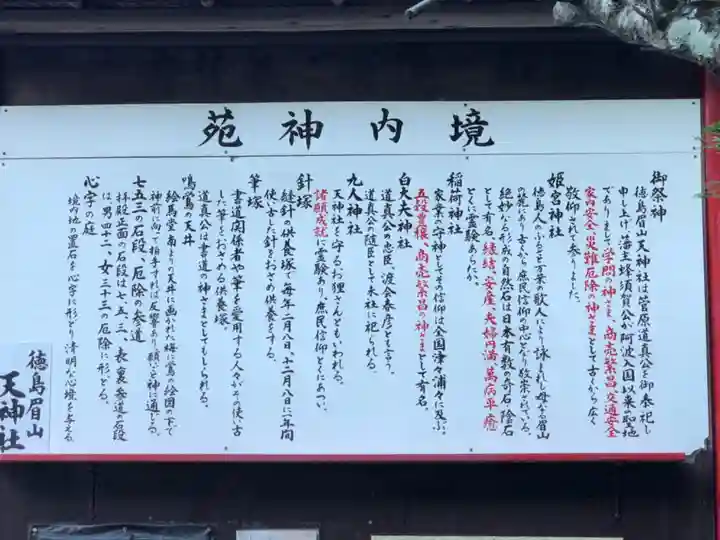 境内神苑
御祭神
徳島眉山天神社は菅原道真公を御奉祀し
申し上げ、藩主蜂須賀公が阿波入国以来の聖地
でありまして学問の神さま、商売繁昌、交通安全
家内安全、災難厄除の神さまとして古くから広く
敬仰されて参りました。
姫宮神社
徳島人のふるさと万葉の歌人により詠まれし母なる眉山
の麓にあり古から庶民信仰の中心になり散策されている。
絶妙なる形成の自然石は日本有数の奇石(陰石)
として有名、縁結、安産、夫婦円満、萬病平癒
とくに霊験あらたか。
稲荷神社
家業の守神としてその信仰は全国津々浦々に及ぶ。
五穀豊穣、商売繁昌の神さまとして有名。
白太夫神社
道真公の忠臣、渡会春彦とも言う。
道真公の随臣として末社に祀られる。
九人神社
天神社を守るお狸さんともいわれる。
諸願成就に霊験あり、庶民信仰とくにあつい。
針塚
縫針の供養塚で毎年二月八日、十二月八日に年間
使い古した針をおさめ供養をする。
筆塚
書道関係者や筆を愛用する人々がその使い古
した筆をおさめる供養塚。
道真公は書道の神さまとしてもしられる。
鳴鶯の天井
絵馬堂南よりの天井に画かれた梅に鶯の絵図の下で
神前に向って拍手すれば反響あり、願いが神に通じる。
七五三の石段、厄除の参道
拝殿正面の石段は七、五、三、表、裏参道の石段
は男四十二、女三十三の厄除に形どる。
心字の庭
境内地の置石を心字に形どり清明な心境を与える
徳島眉山
天神社